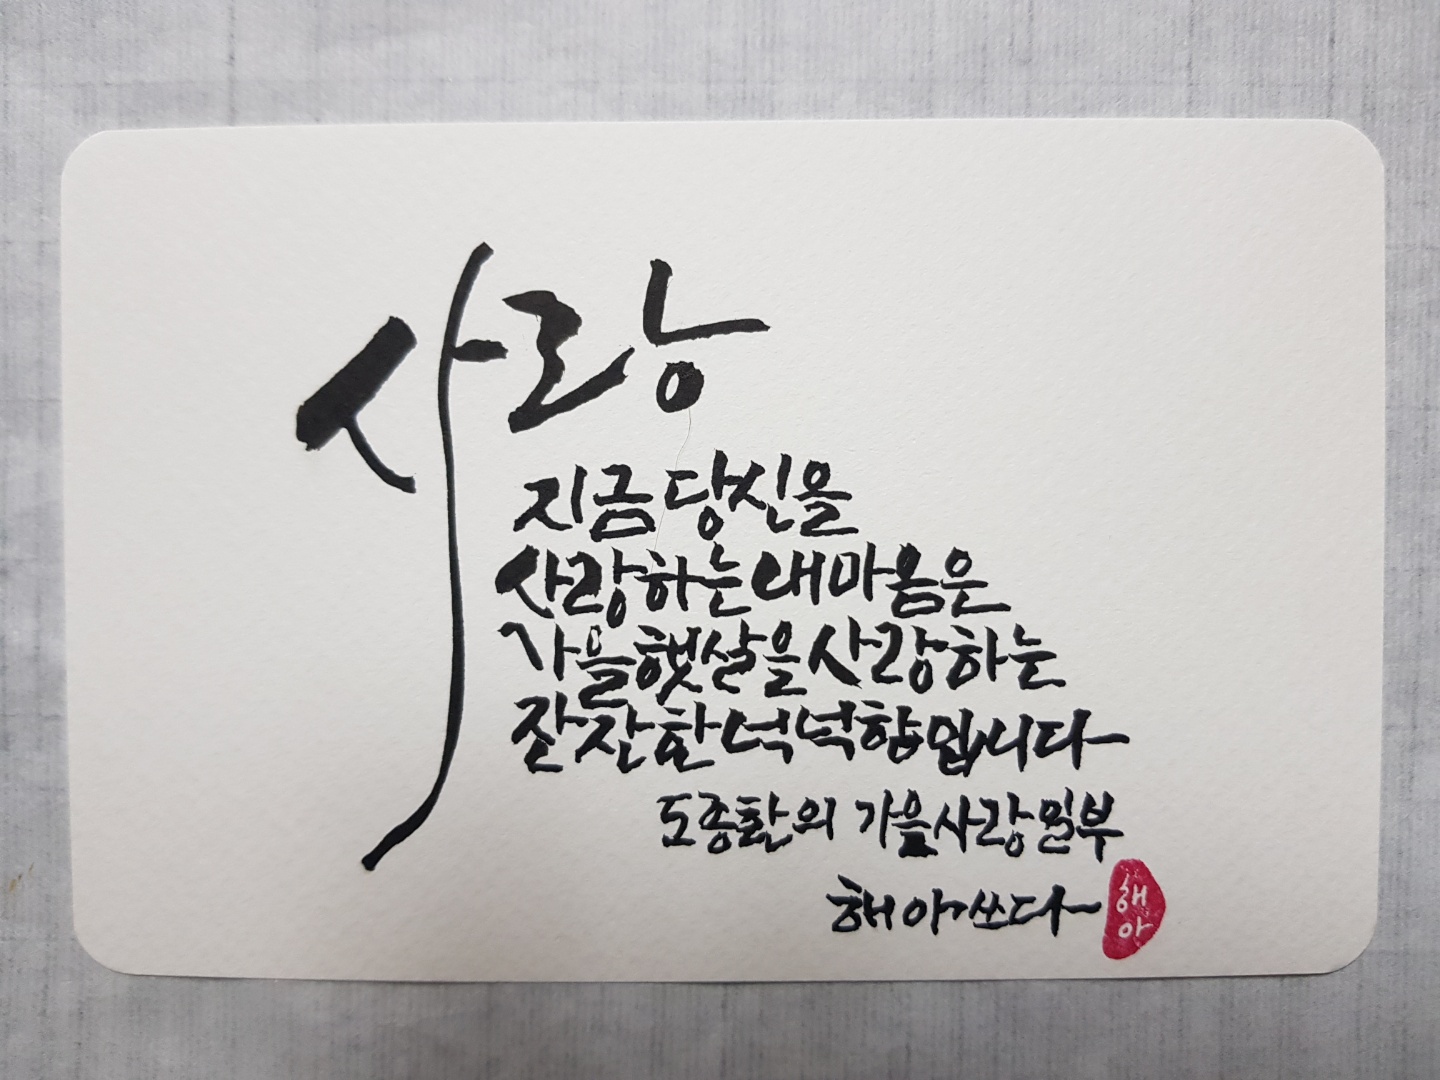 사랑
지금 당신을
사랑하는 내 마음은
가을 햇살을 사랑하는
잔잔한 넉넉함입니다
도종환의 가을사랑 일부
해아 쓰다
해아